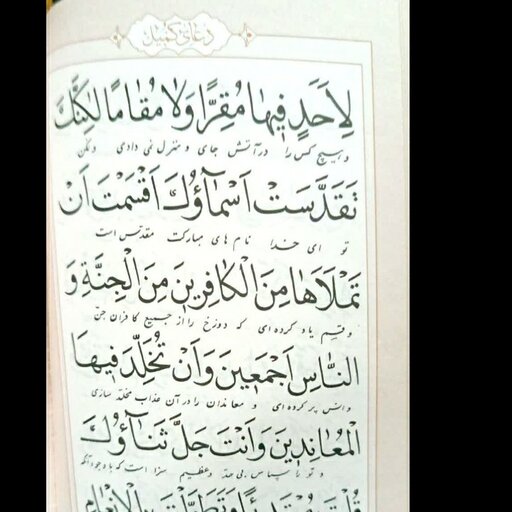 دعای کمیل
لِاَحَدٍ فِیهٰا مُقِرًّا وَلٰا مُقٰامًا لٰکِنَّکَ
و هیچ کس را در آتش جای و منزل نمی دادی ولکن
تَقَدَّسَتْ اَسْمٰآؤُکَ اَقْسَمْتَ اَنْ
تو ای خدا نام های مبارکت مقدس است
تَمْلَاَهٰا مِنَ الْکٰافِرِینَ مِنَ الْجِنَّةِ وَ
و قسم یاد کرده ای که دوزخ را از جمیع کافران جن
النّٰاسِ اَجْمَعِینَ وَاَنْ تُخَلِّدَ فِیهَا
و انس پر کرده ای و معاندان را در آن عذاب مخلد سازی
الْمُعٰانِدِینَ وَاَنْتَ جَلَّ ثَنٰآؤُکَ
و تو را سپاس بی حد و عظیم سزا است که با وجود آنکه